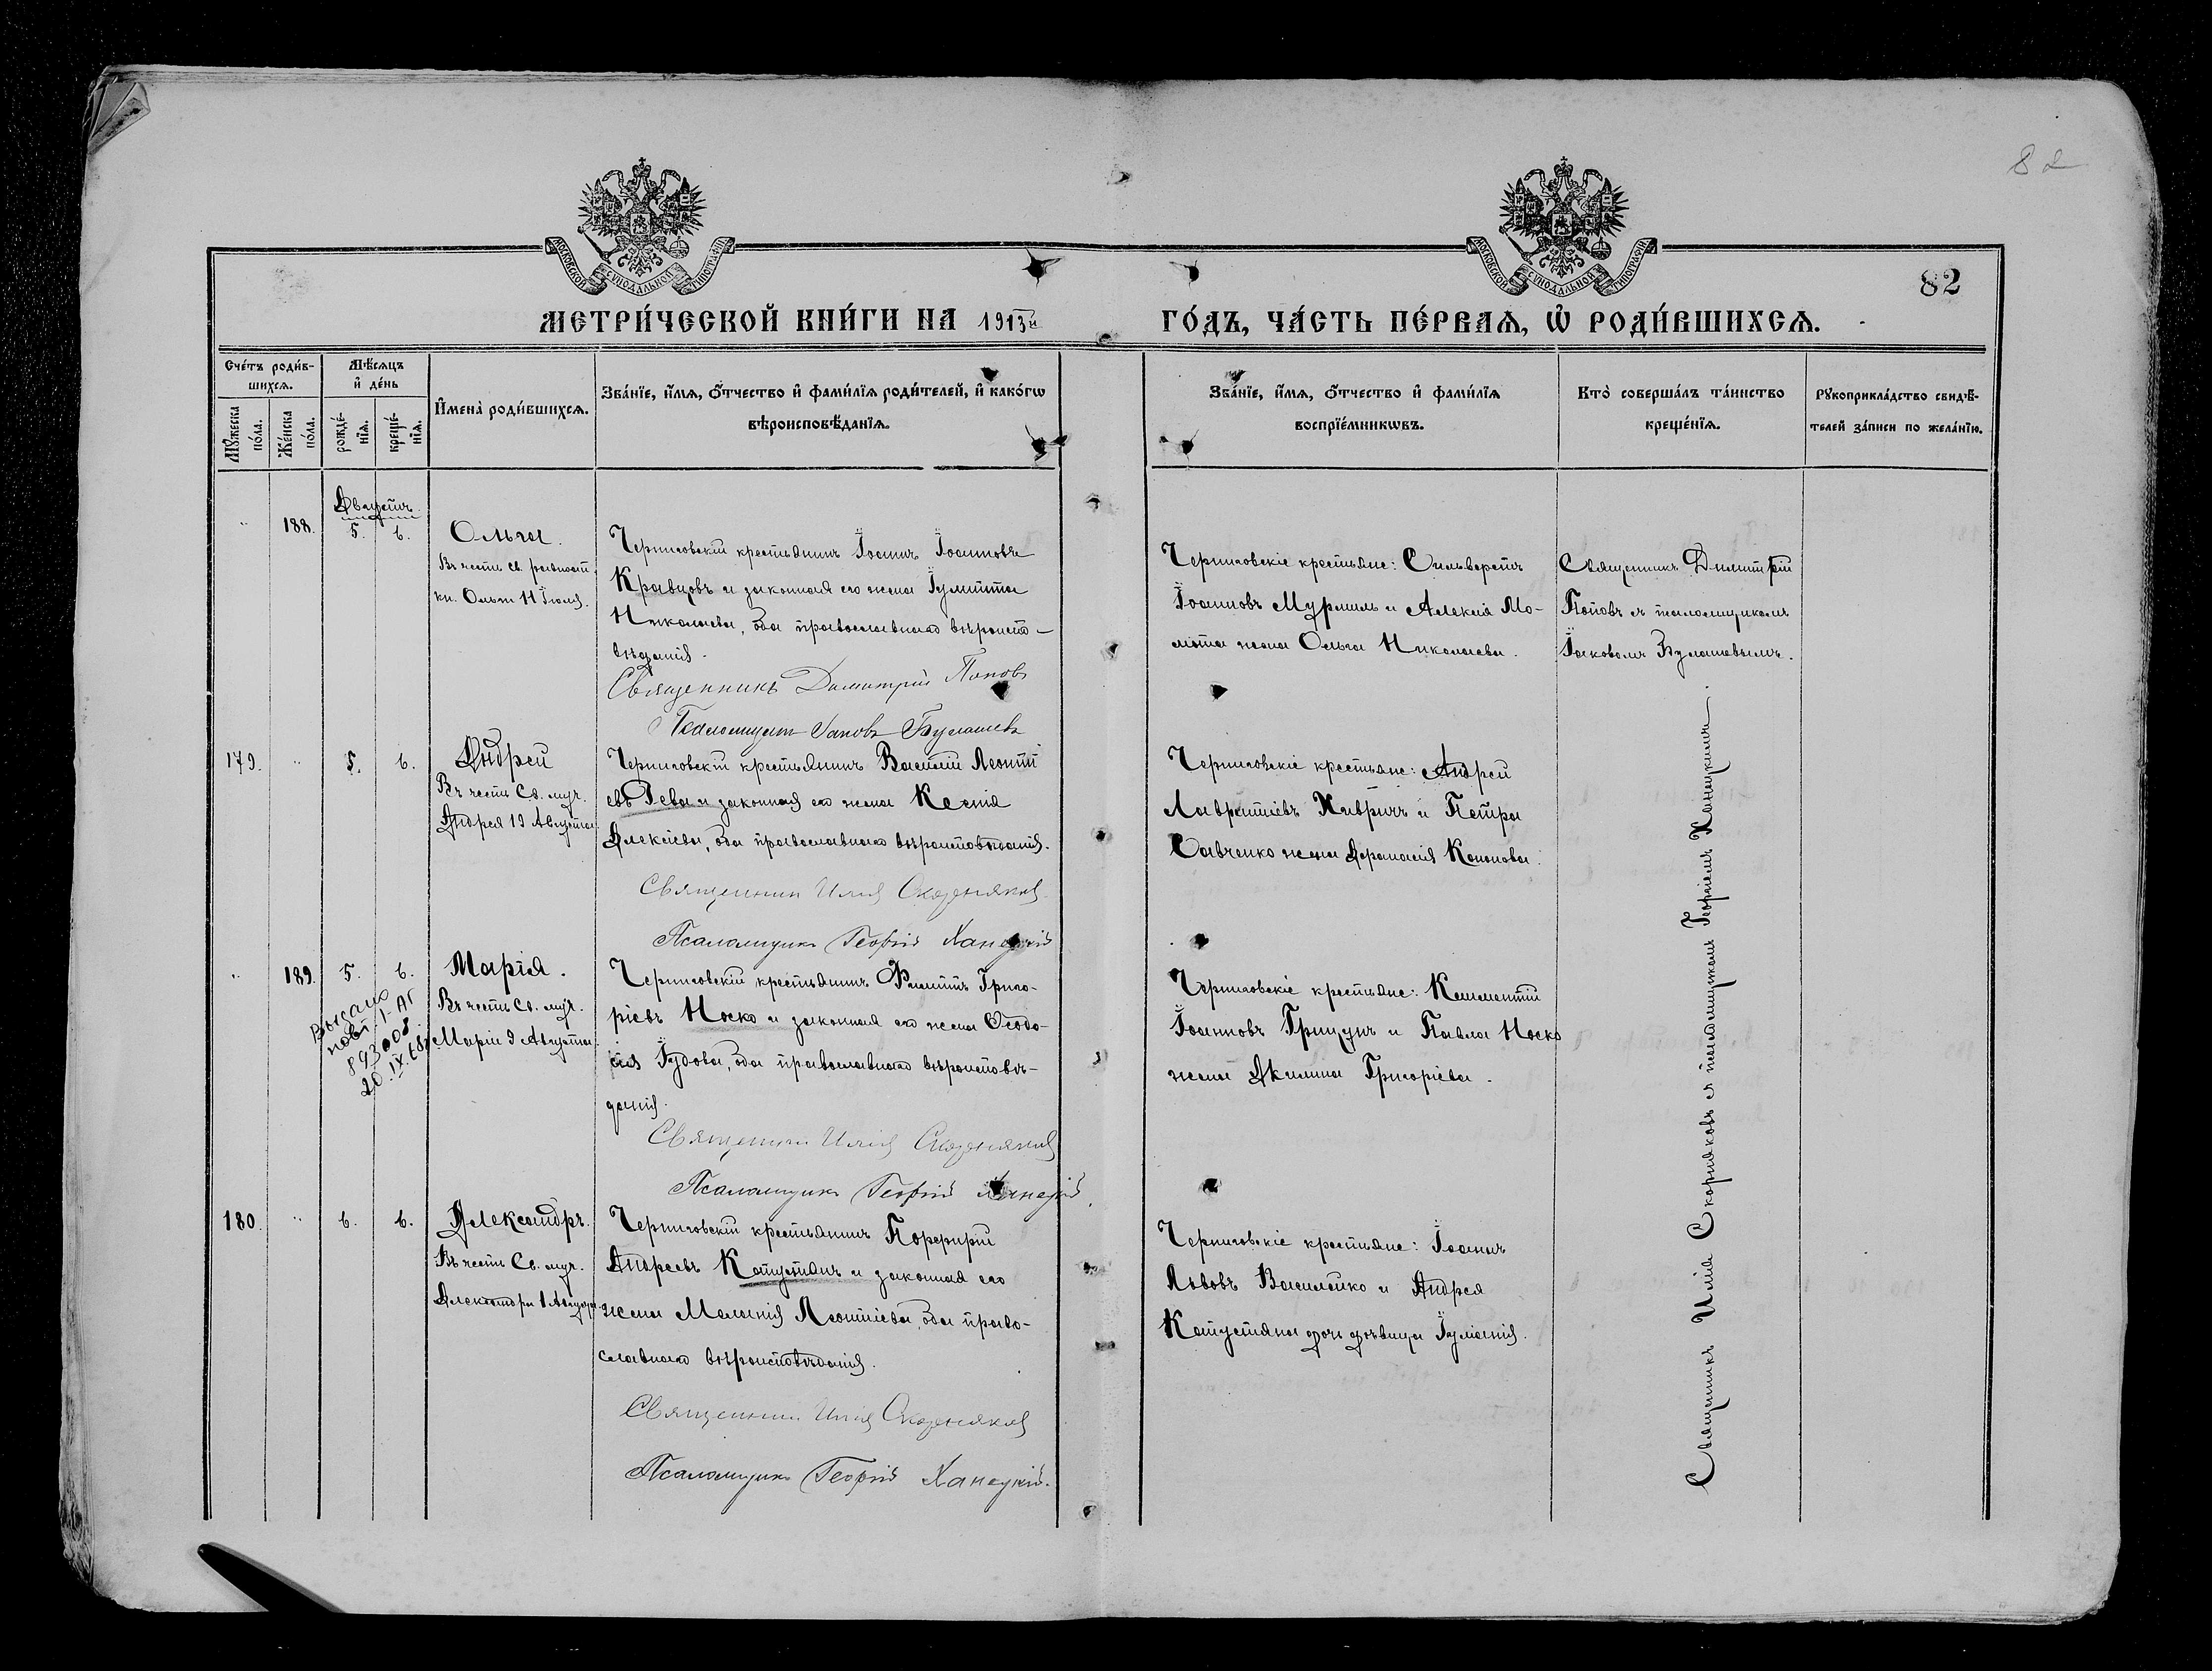 82
МОСКОВСКОЙ СУНОДАЛЬНОЙ ТИПОГРАФІИ
МОСКОВСКОЙ СУНОДАЛЬНОЙ ТИПОГРАФІИ
82
МЕТРИ́ЧЕСКОЙ КНИ́ГИ НА 1913й ГО́ДЪ, ЧА́СТЬ ПЕ́РВАѦ, Ѡ҆ РОДИ́ВШИХСѦ.
Сче́тъ роди́в-
шихсѧ.
Мѣ́сѧцъ
и҆ де́нь
И҆мена̀ роди́вшихсѧ.
Зва́нїе, и҆́мѧ, ѻ҆́тчество и҆ фами́лїѧ роди́телей, и҆ како́гѡ
вѣроисповѣ́данїѧ.
Зва́нїе, и҆́мѧ, ѻ҆́тчество и҆ фами́лїѧ
воспрїе́мникѡвъ.
Кто̀ соверша́лъ та́инство
креще́нїѧ.
Рꙋкоприкла́дство свидѣ́-
телей за́писи по жела́нїю.
Мꙋ́жеска
по́ла.
Же́нска
по́ла.
рожде́-
нїѧ.
креще́-
нїѧ.
Августъ
188. 5. 6. Ольга.
Въ честь св. равноап.
кн. Ольги 11 Іюля.
Черниговскій крестьянинъ Іоаннъ Іоанновъ
Кравцовъ и законная его жена Іулитта
Николаева, оба православнаго вѣроиспо-
вѣданія.
Священникъ Димитрій Поповъ
Псаломщикъ Іаковъ Булашевъ
Черниговскіе крестьяне: Сильверстъ
Іоанновъ Мурмиль и Алексія Мо-
жена Ольга Николаева.
Священникъ Димитрій
Поповъ съ псаломщикомъ
Іаковомъ Булашевымъ.
179. 5. 6. Андрей
Въ честь Св. муч.
Андрея 19 Августа.
Черниговскій крестьянинъ Василій Леонті
евъ Гева и законная его жена Ксенія
Алексіева, оба православнаго вѣроисповѣданія.
Священникъ Илія Скорняковъ
Псаломщикъ Георгій Ханецкій
Черниговскіе крестьяне: Андрей
Лаврентіевъ Хавричъ и Петра
Савченко жена Афанасія Кононова.
189. 5. 6. Марія.
Въ честь Св. муч.
Маріи 9 Августа.
Выдано
повт. I-АГ
893008
20.IX.68г
Черниговскій крестьянинъ Филиппъ Григо-
ріевъ Носко и законная его жена Ѳеодо-
сія Іудова, оба православнаго вѣроисповѣ-
данія.
Священникъ Илія Скорняковъ
Псаломщикъ Георгій Ханецкій
Черниговскіе крестьяне: Климентій
Іоанновъ Грицунъ и Павла Носко
жена Акилина Григоріева.
180. 6. 6. Александръ.
Въ честь Св. муч.
Александра 1 Августа.
Черниговскій крестьянинъ Порфирій
Андреевъ Капустянъ и законная его
жена Меланія Леонтіева, оба право-
славнаго вѣроисповѣданія.
Священникъ Илія Скорняковъ
Псаломщикъ Георгій Ханецкій.
Черниговскіе крестьяне: Іоаннъ
Львовъ Василейко и Андрея
Капустяна дочь дѣвица Іуліанія.
Священникъ Илія Скорняковъ съ псаломщикомъ Георгіемъ Ханецкимъ.